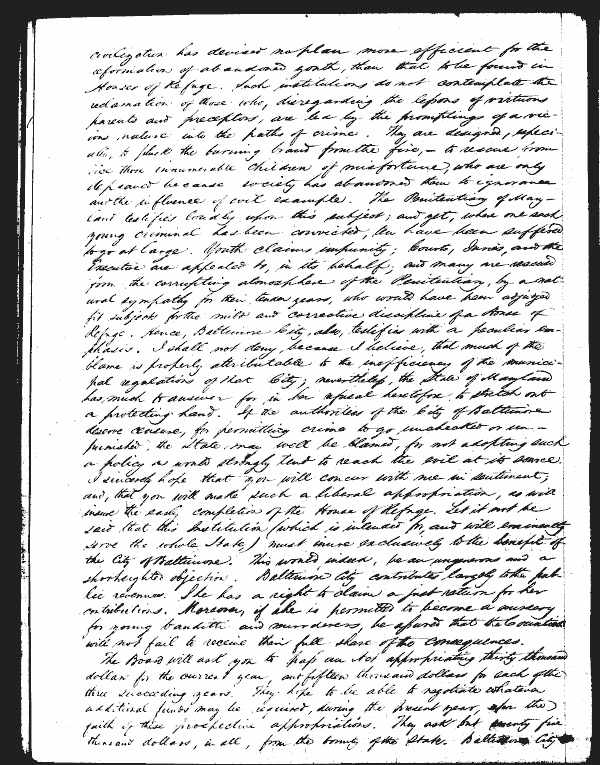 civilization has devised no plan more efficient for the
reformation of abandoned youth, than that to be found in
Houses of Refuge. Such institutions do not contemplate the
reclamation of those who, disregarding the lessons of virtuous
parents and preceptors, are led by the promptings of a vic-
ious nature into the paths of crime. They are designed, especi-
ally, to pluck the burning brand from the fire, – to rescue from
vice those innumerable children of misfortune, who are only
depraved because society has abandoned them to ignorance
and the influence of evil example. The Penitentiary of Mary-
land testifies loudly upon this subject; and yet, where one such
young criminal has been convicted, ten have been suffered
to go at large. Youth claims impunity; Courts, Juries, and the
Executive are appealed to, in its behalf, and many are rescued
from the corrupting atmosphere of the Penitentiary, by a nat-
ural sympathy for their tender years, who would have been adjudged
fit subjects for the mild and corrective discipline of a House of
Refuge. Hence, Baltimore City, also, testifies with a peculiar em-
phasis. I shall not deny, because I believe, that much of the
blame is properly attributable to the inefficiency of the munici-
pal regulations of that City; nevertheless, the State of Maryland
has much to answer for in her refusal heretofore to stretch out
a protecting hand. If the authorities of the City of Baltimore
deserve censure, for permitting crime to go unchecked or un-
punished, the State may well be blamed, for not adopting such
a policy as would strongly tend to reach the evil at its source.
I sincerely hope that you will concur with me in sentiment,
and, that you will make such a liberal appropriation, as will
insure the early completion of the House of Refuge. Let it not be
said that this Institution (which is intended for, and will eminently
serve the whole State,) must inure exclusively to the benefit of
the City of Baltimore. This would indeed, be an ungenerous and a
shortsighted objection. Baltimore City contributes largely to the pub-
lic revenues. She has a right to claim a just return for her
contributions. Moreover, if she is permitted to become a nursery
for young banditti and murderers, be assured that the Counties
will not fail to receive their full share of the consequences.
The Board will ask you to pass an Act appropriating thirty thousand
dollars for the current year, and fifteen thousand dollars for each of the
three succeeding years. They hope to be able to negotiate whatever
additional funds may be required, during the present year, upon the
faith of these prospective appropriations. They ask but seventy five
thousand dollars, in all, from the bounty of the State. Baltimore City